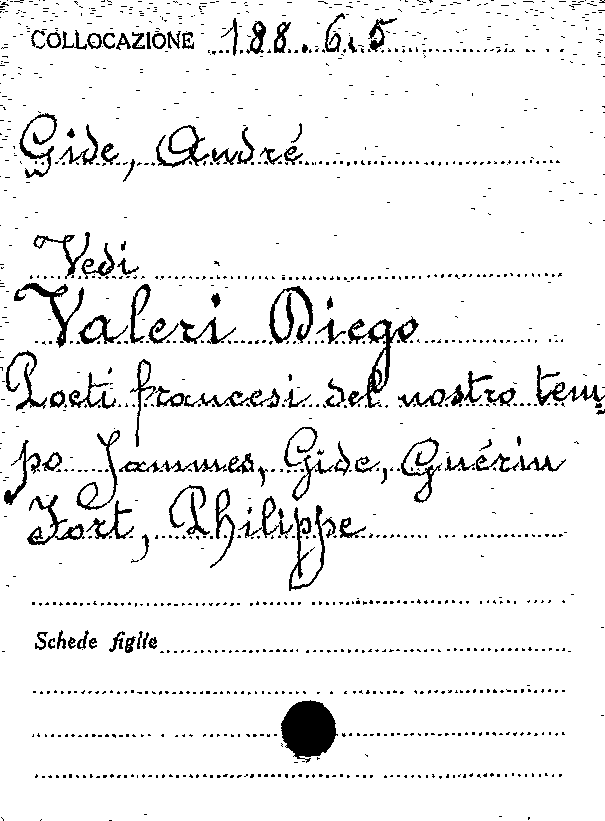 COLLOCAZIONE 188.6.5
Gide, André
Vedi
Valeri Diego
Poeti francesi del nostro tem-
po Jammes, Gide, Guérin
Fort, Philippe
Schede figlie